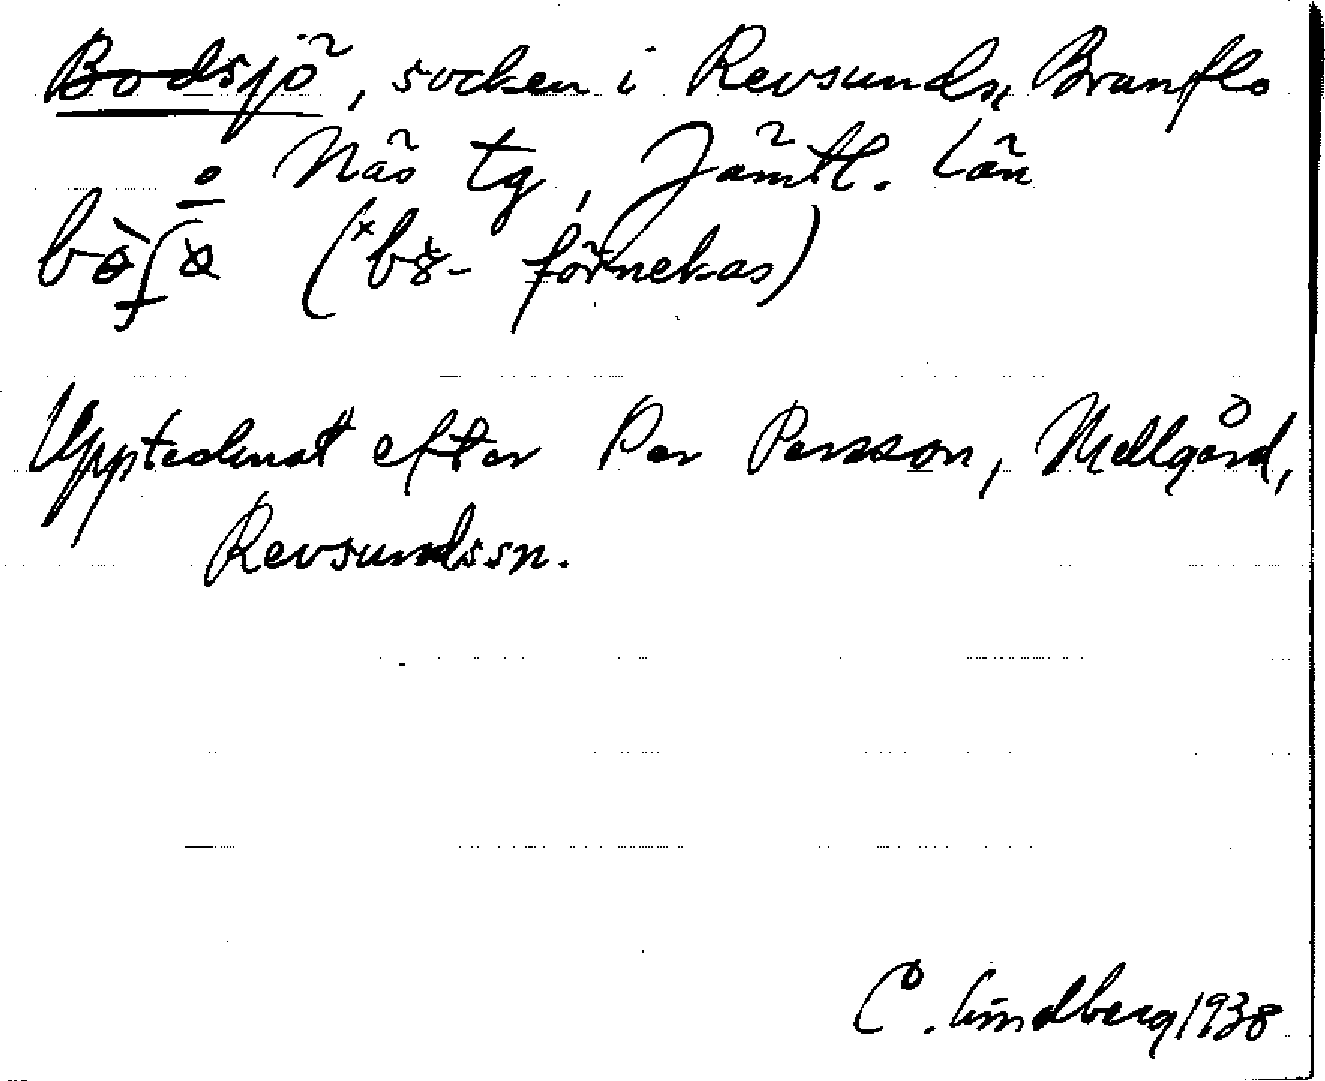 Bodsjö, socken i Revsunds, Brunflo
o Näs tg, Jämtl. län
(*b8- förnekas)
Upptecknat efter Per Persson, Mellgård,
Revsundssn.
C. Lindberg 1938